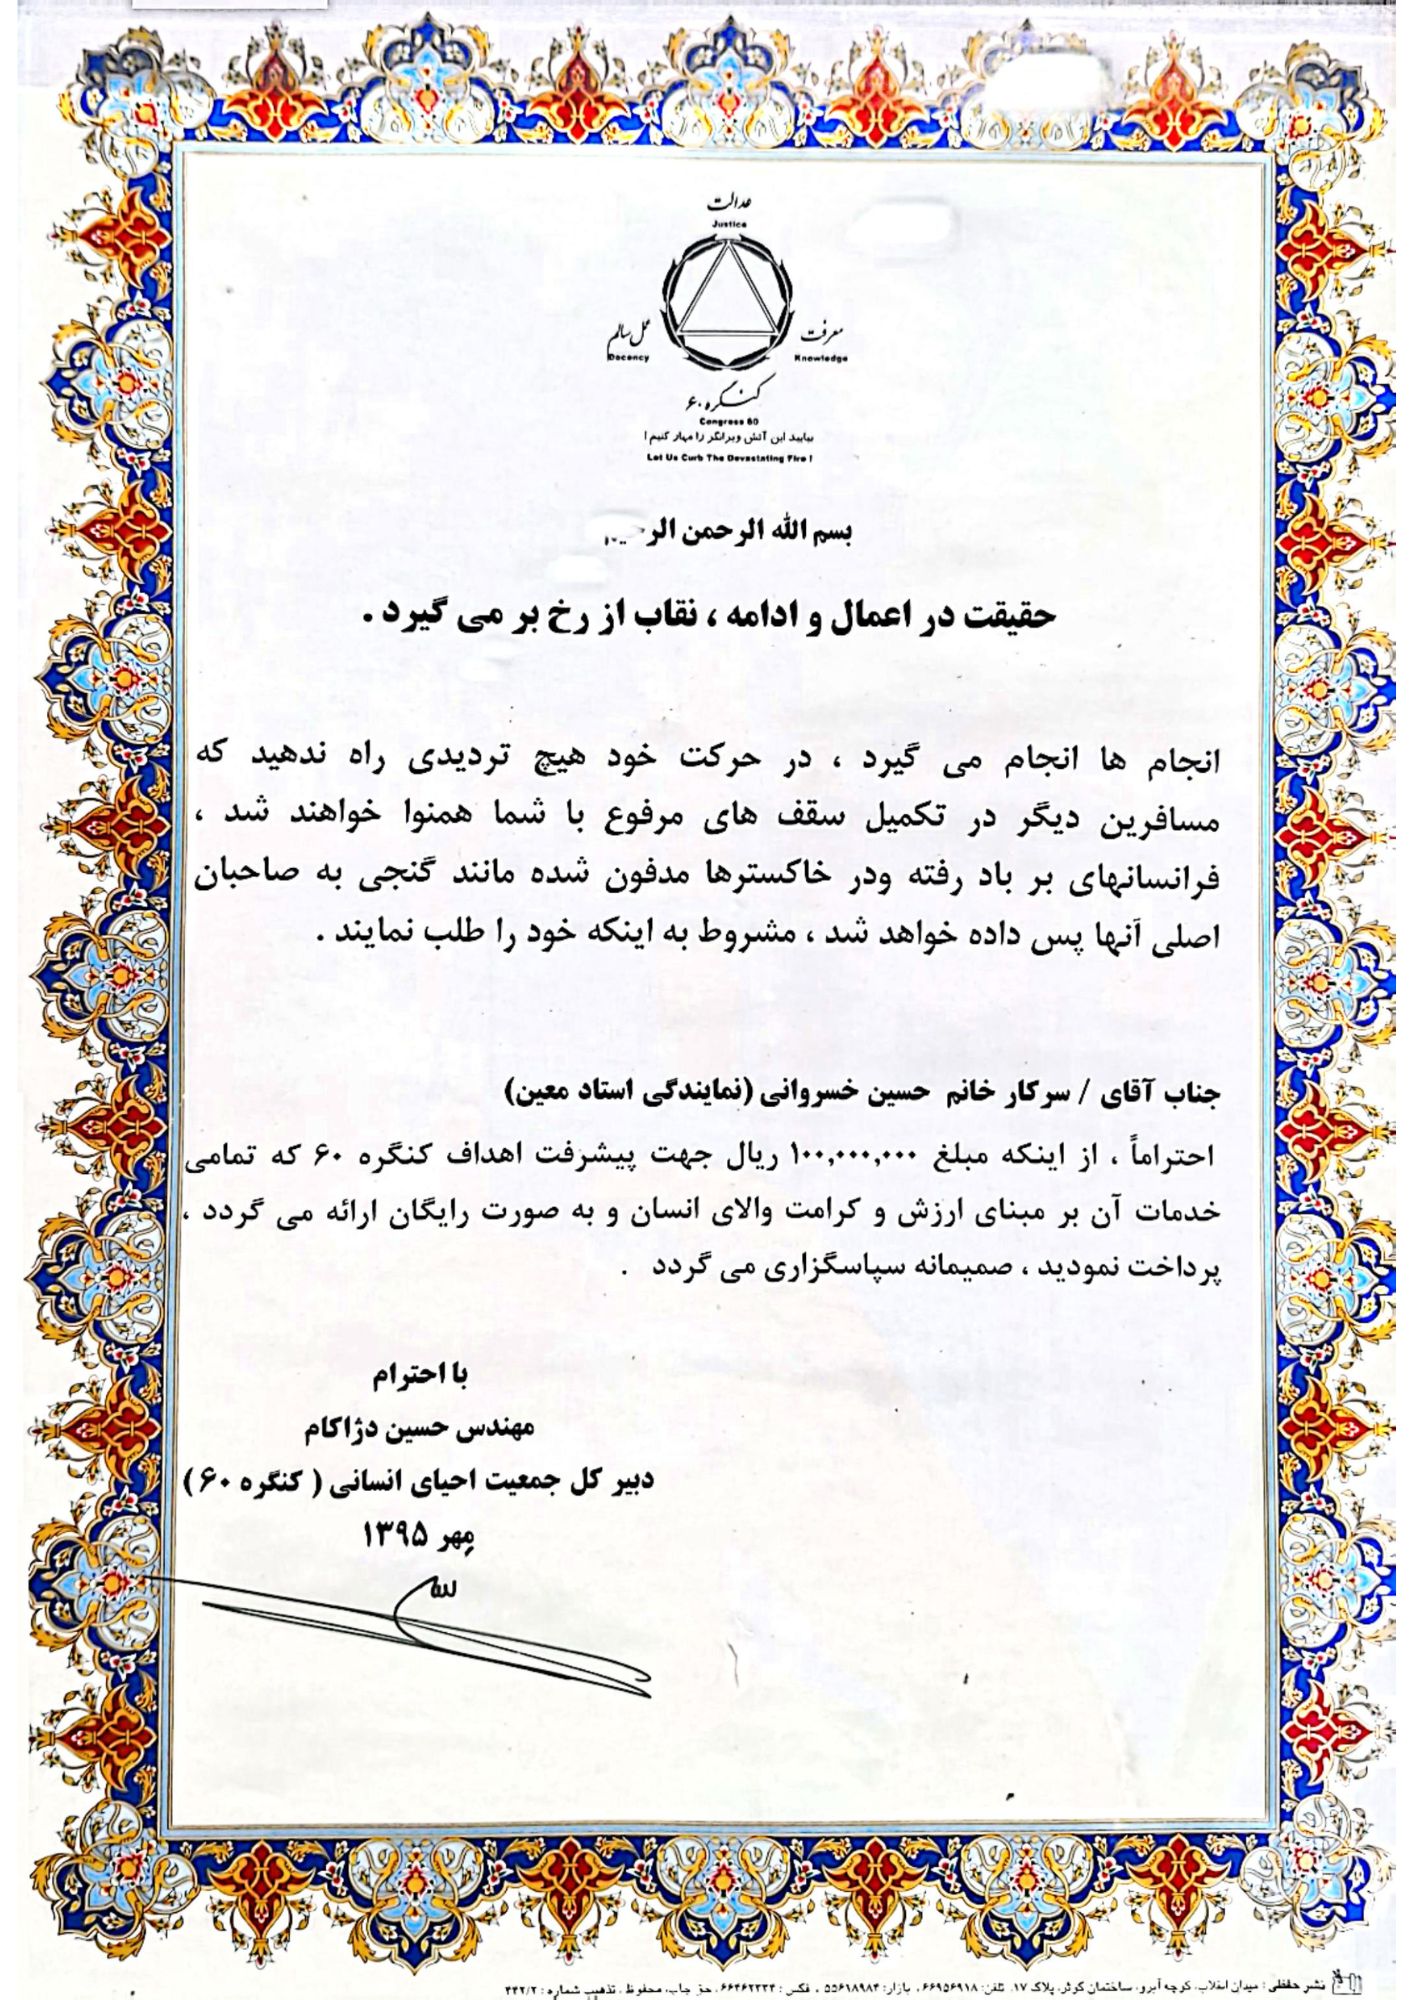 عدالت
Justice
معرفت
عمل سالم
Docency
Knowledge
کنگره ۶۰
Congress 60
بیایید این آتش ویرانگر را مهار کنیم !
Let Us Curb The Devastating Fire !
بسم الله الرحمن
حقیقت در اعمال و ادامه ، نقاب از رخ بر می گیرد .
انجام ها انجام می گیرد ، در حرکت خود هیچ تردیدی راه ندهید که
مسافرین دیگر در تکمیل سقف های مرفوع با شما همنوا خواهند شد ،
فرانسانهای بر باد رفته ودر خاکسترها مدفون شده مانند گنجی به صاحبان
اصلی آنها پس داده خواهد شد ، مشروط به اینکه خود را طلب نمایند .
جناب آقای / سرکار خانم حسین خسروانی (نمایندگی استاد معین)
احتراماً ، از اینکه مبلغ ۱۰۰,۰۰۰,۰۰۰ ریال جهت پیشرفت اهداف کنگره ۶۰ که تمامی
خدمات آن بر مبنای ارزش و کرامت والای انسان و به صورت رایگان ارائه می گردد ،
پرداخت نمودید ، صمیمانه سپاسگزاری می گردد .
با احترام
مهندس حسین دژاکام
دبیر کل جمعیت احیای انسانی ( کنگره ۶۰ )
مهر ۱۳۹۵
نشر حفظی : میدان انقلاب، کوچه آبرو، ساختمان کوثر، پلاک ۱۷، تلفن: ۶۶۹۵۶۹۱۸، بازار: ۵۵۶۱۸۹۸۴ ، فکس : ۶۶۴۶۲۳۳۴، حق چاپ محفوظ . تذهیب شماره : ۴۴۲/۲